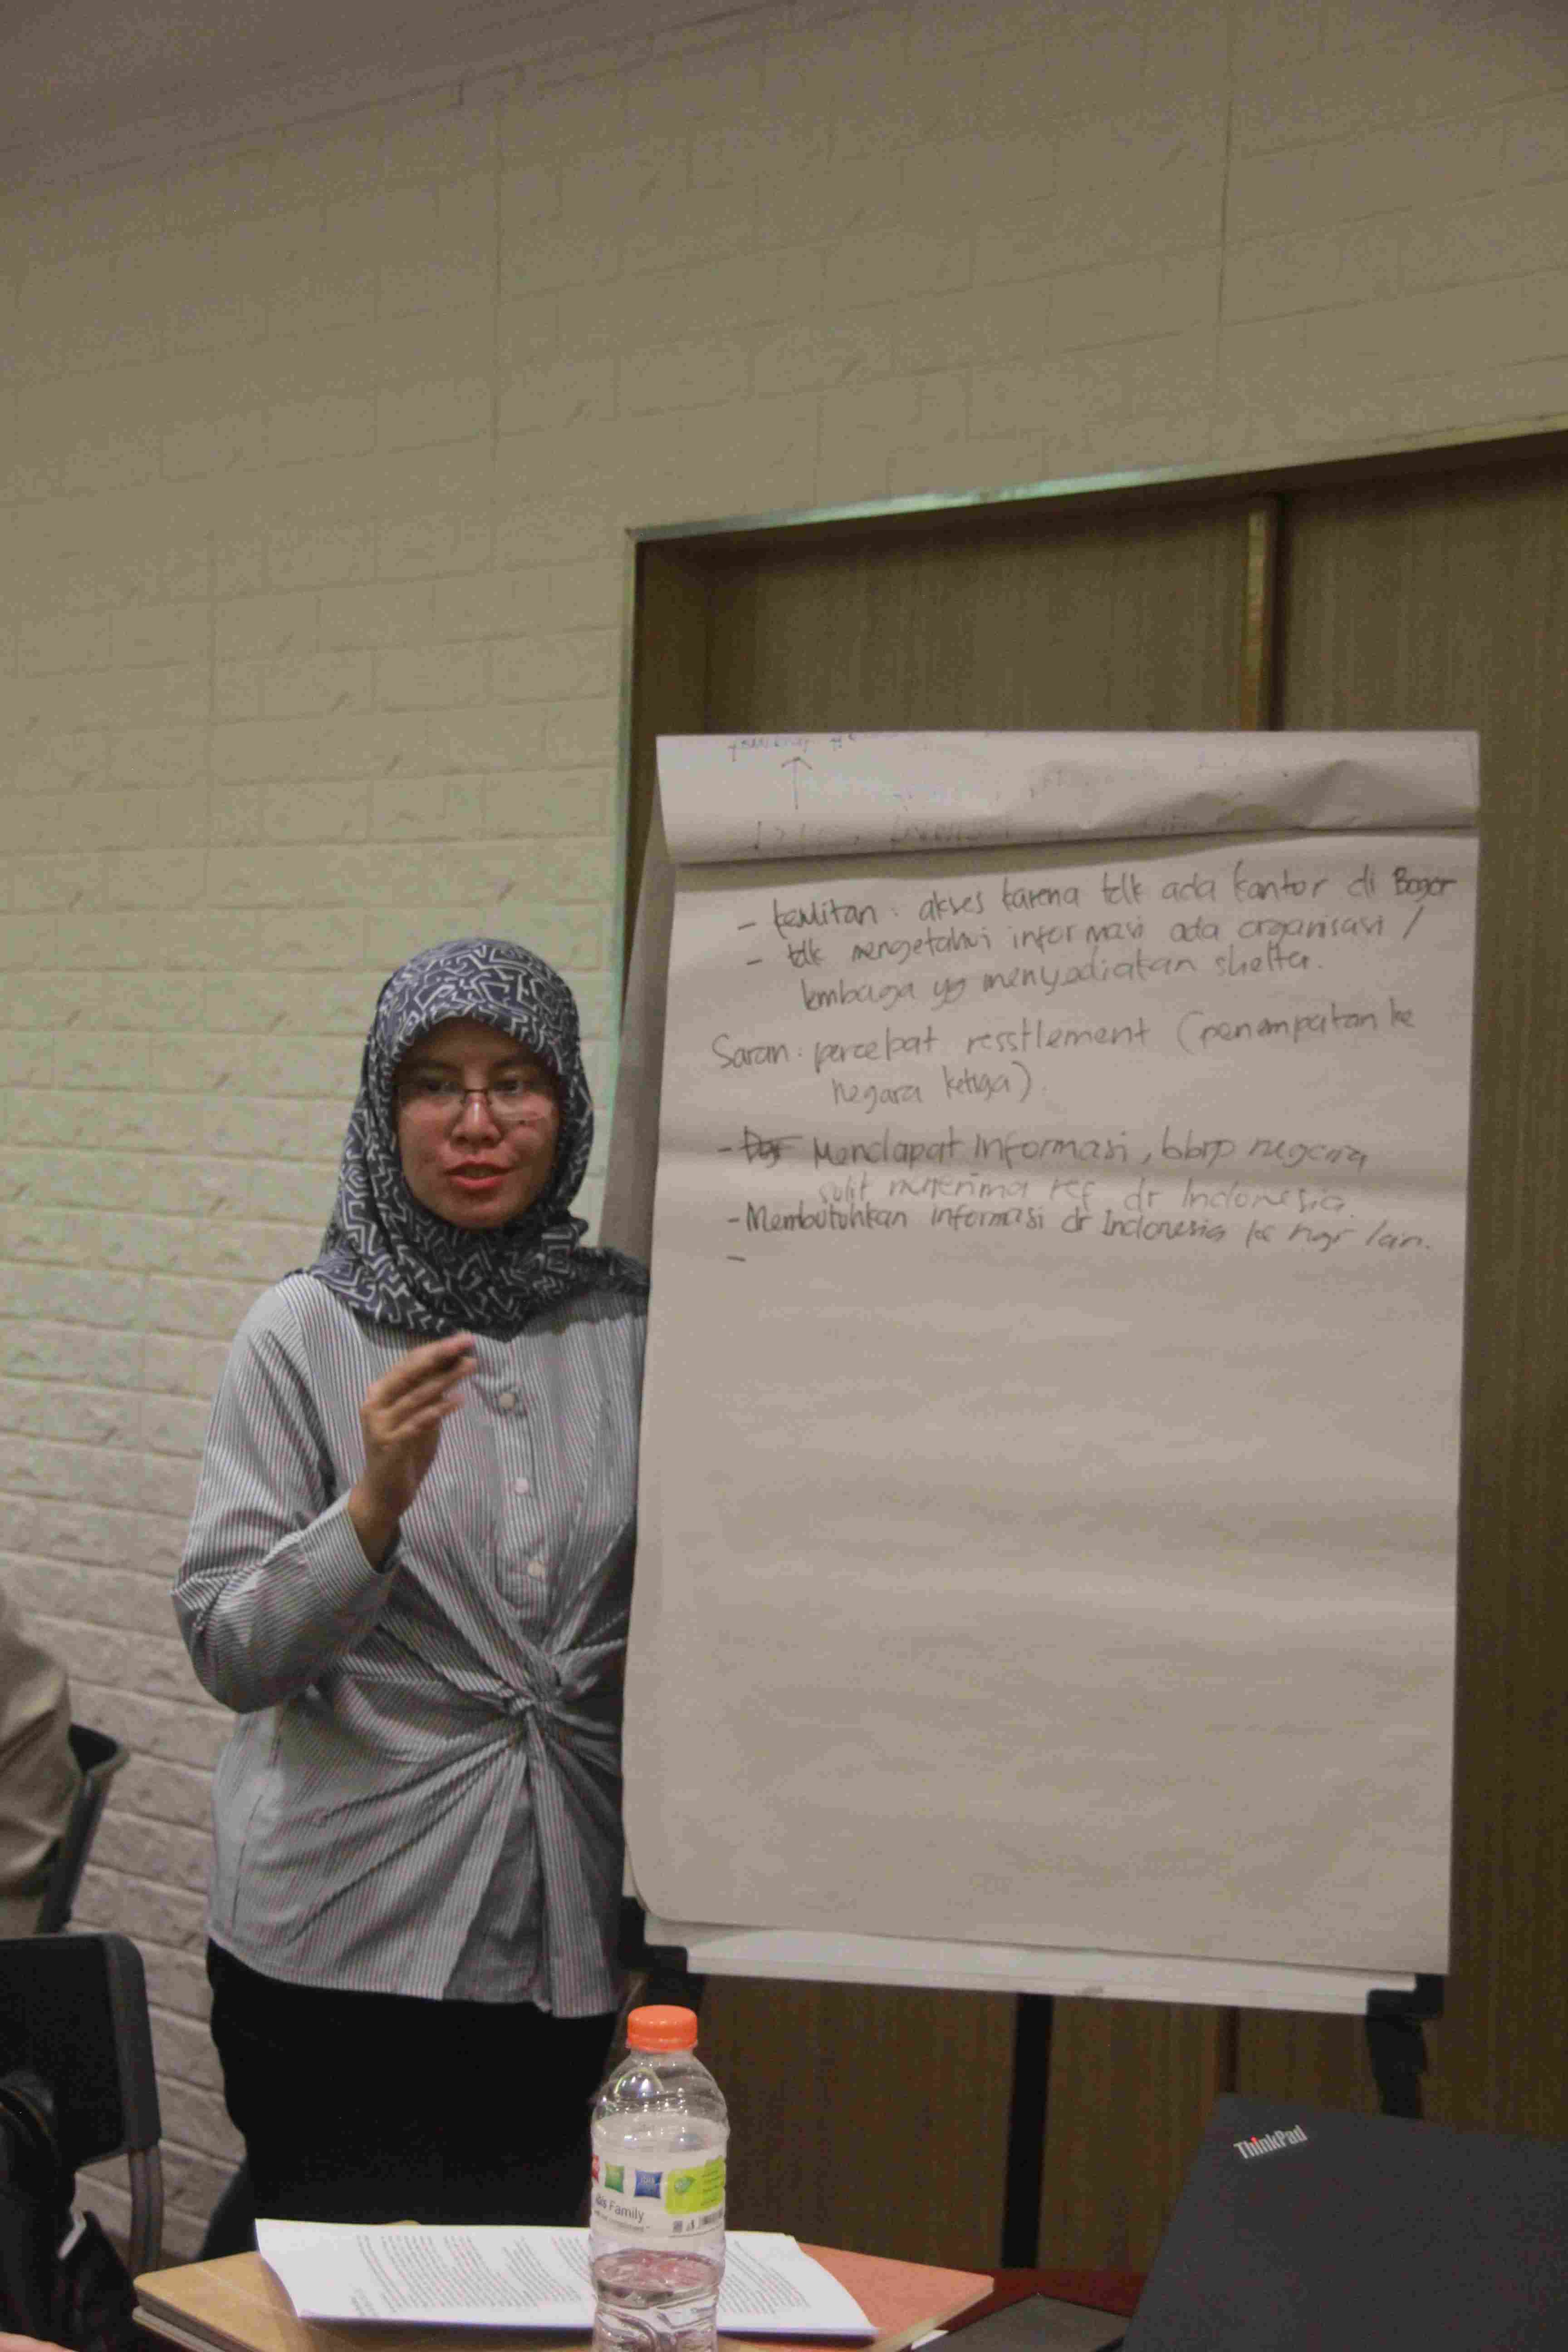 - kesulitan : akses karena tdk ada kantor di Bogor
- tdk mengetahui informasi ada organisasi /
lembaga yg menyediakan shelter.
Saran : percepat resstlement (penempatan ke
negara ketiga).
- Mendapat informasi, bbrp negara
sulit menerima ref dr Indonesia.
- Membutuhkan informasi dr Indonesia ke ngr lain.
-
ThinkPad
Family